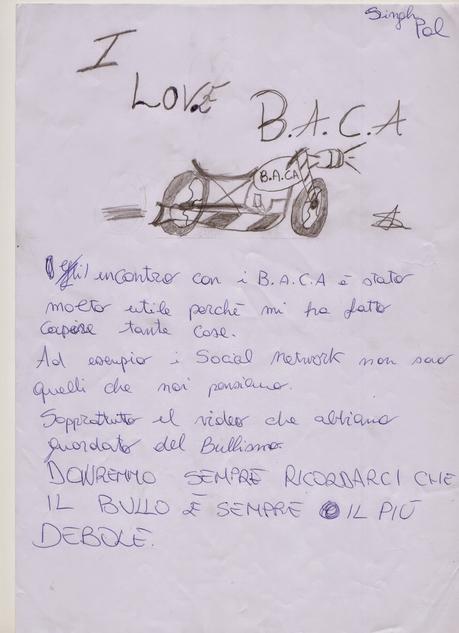 Singh
Pal
I
LOVE
B.A.C.A
B.A.CA
il incontro con i B.A.C.A è stato
molto utile perchè mi ha fatto
capire tante cose.
Ad esempio i Social network non sono
quelli che noi pensiamo.
Soprattutto il video che abbiamo
guardato del Bullismo.
DOVREMMO SEMPRE RICORDARCI CHE
IL BULLO È SEMPRE IL PIÙ
DEBOLE.